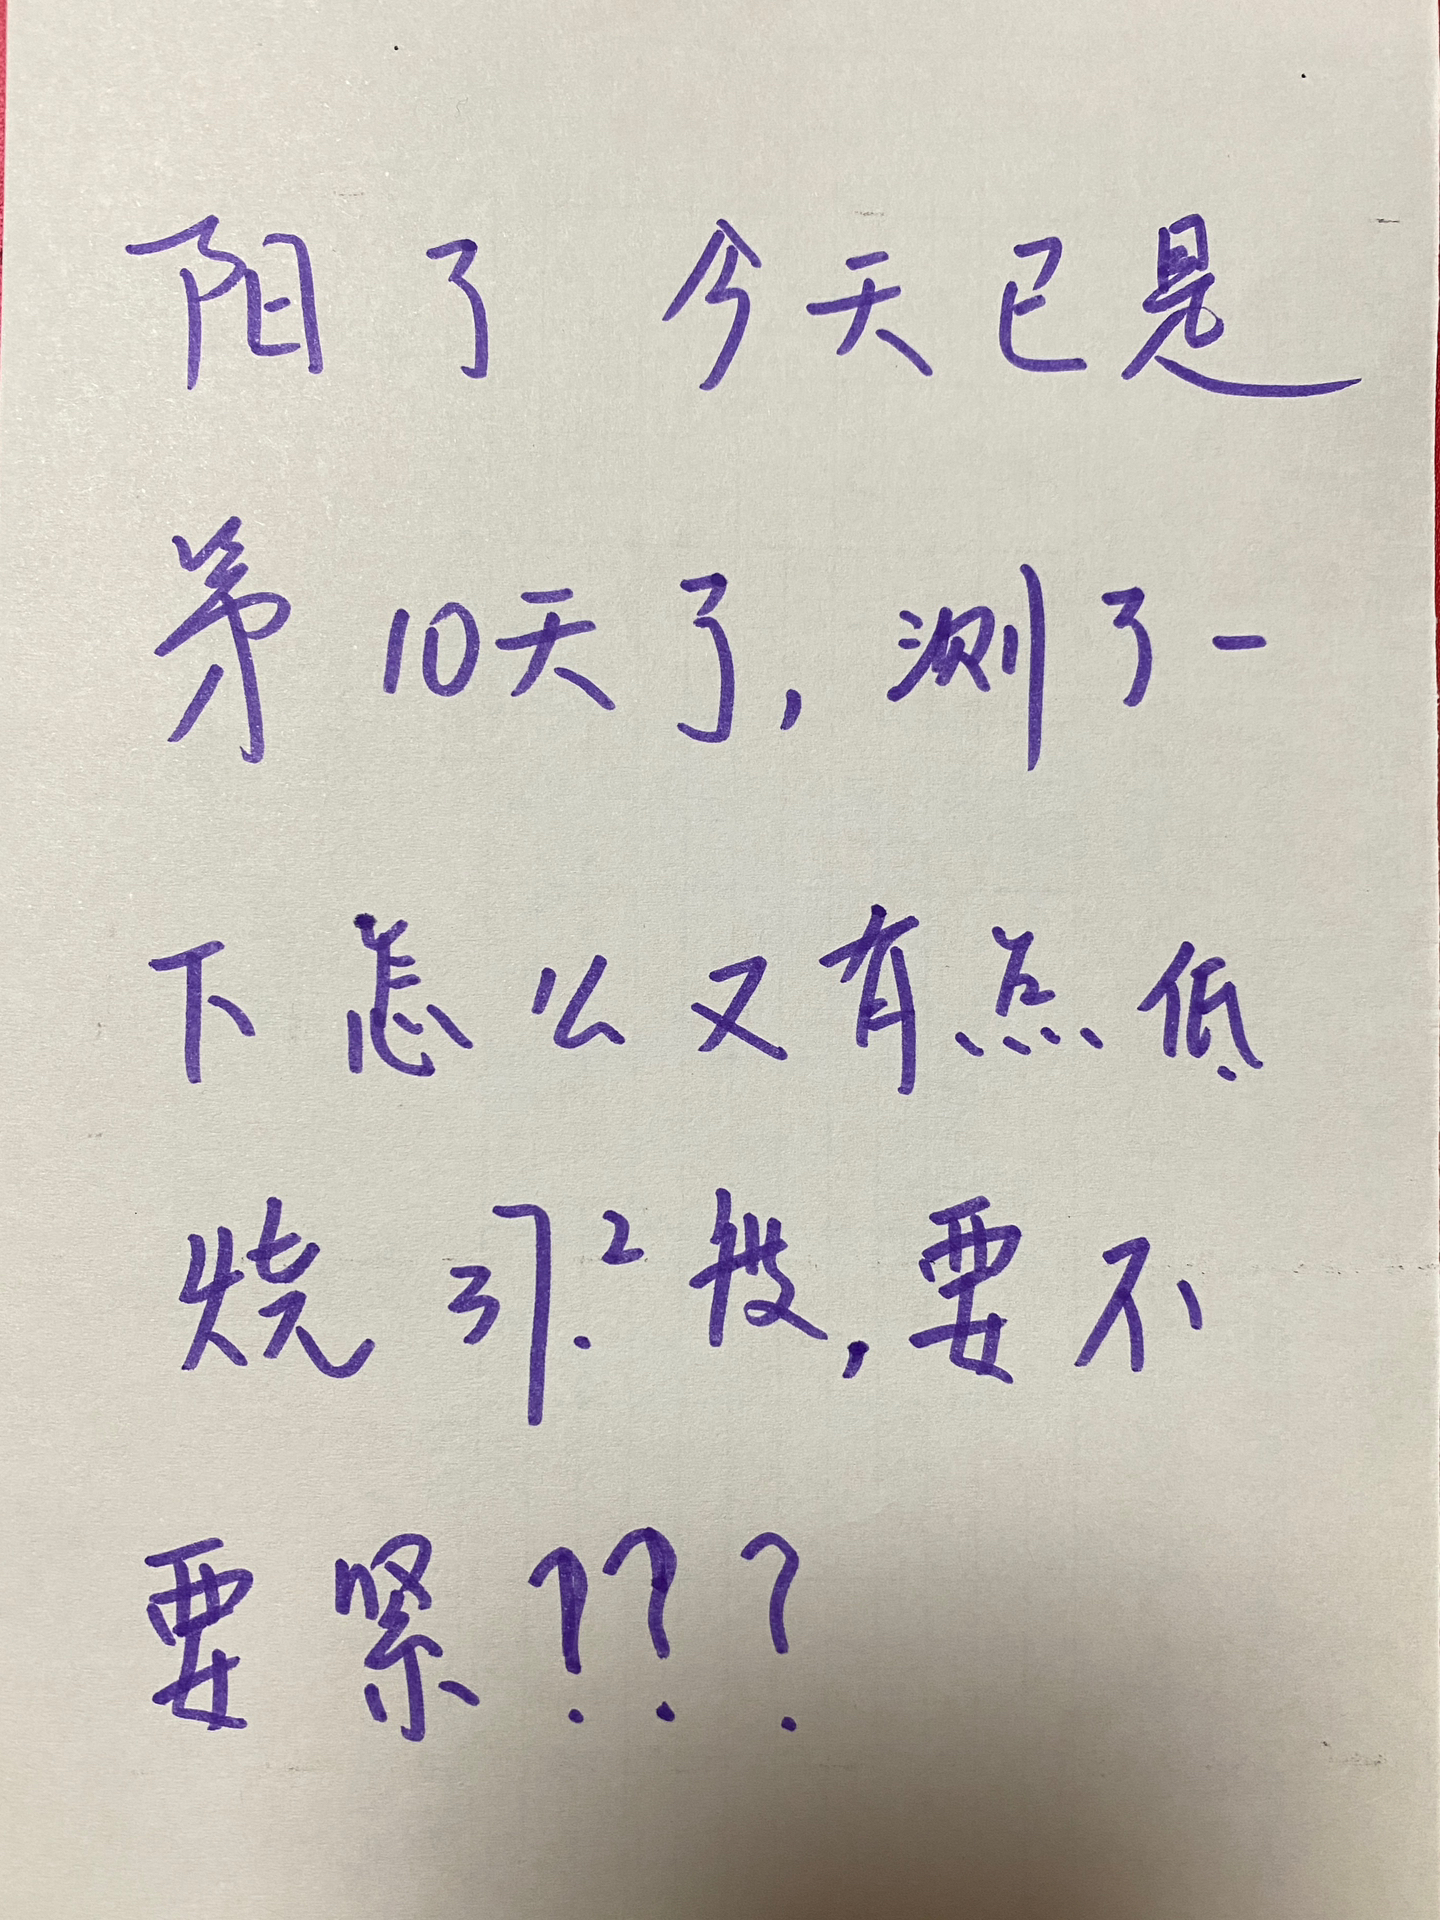 阳了 今天已是
第10天了,测了一
下怎么又有点低
烧 37.2 按,要不
要紧???